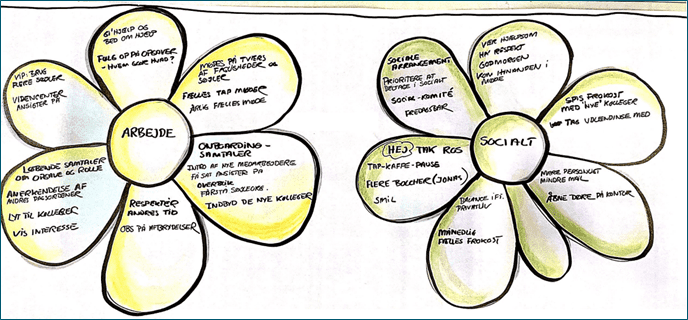 GI' HJELP OG
BED OM HJELP
FØLG OP PÅ OPGAVER
- HVEM GØR HVAD?
MØDES PÅ TVÆRS
AF FAGLIGHEDER OG
SØJLER
FÆLLES TAP MØDER
ÅRLIG FÆLLES MØDE
ONBOARDING-
SAMTALER
INTRO AF NYE MEDARBEJDERE
FÅ SAT ANSIGTER PÅ
OVERBLIK
INDBYD DE NYE KOLLEGER
RESPEKTÉR
ANDRES TID
OBS PÅ AFBRYDELSER
LØBENDE SAMTALER
OM OPGAVE OG ROLLE
ANERKENDELSE AF
ANDRES DAGSORDENER
LYT TIL KOLLEGER
VIS INTERESSE
VIP: BRUG
FLERE SØJLER
VIDENCENTER
ANSIGTER PÅ
ARBEJDE
SOCIALE
ARRANGEMENT
PRIORITERE AT
DELTAGE I SOCIALT
SOCIAL-KOMITÉ
FREDAGSBAR
VÆR HJELPSOM
HAV RESPEKT
GODMORGEN
KOM HINANDEN I
MØDE
SPIS FROKOST
MED "NYE" KOLLEGER
TAG UDLENDINGE MED
MERE PERSONLIGT
MINDRE MAIL
ÅBNE DØRE PÅ KONTOR
BALANCE IFT.
PRIVATLIV
MÅNEDLIG
FÆLLES FROKOST
HEJ TAK ROS
TAP-KAFFE-PAUSE
FLERE BOLCHER (JONAS)
SMIL
SOCIALT